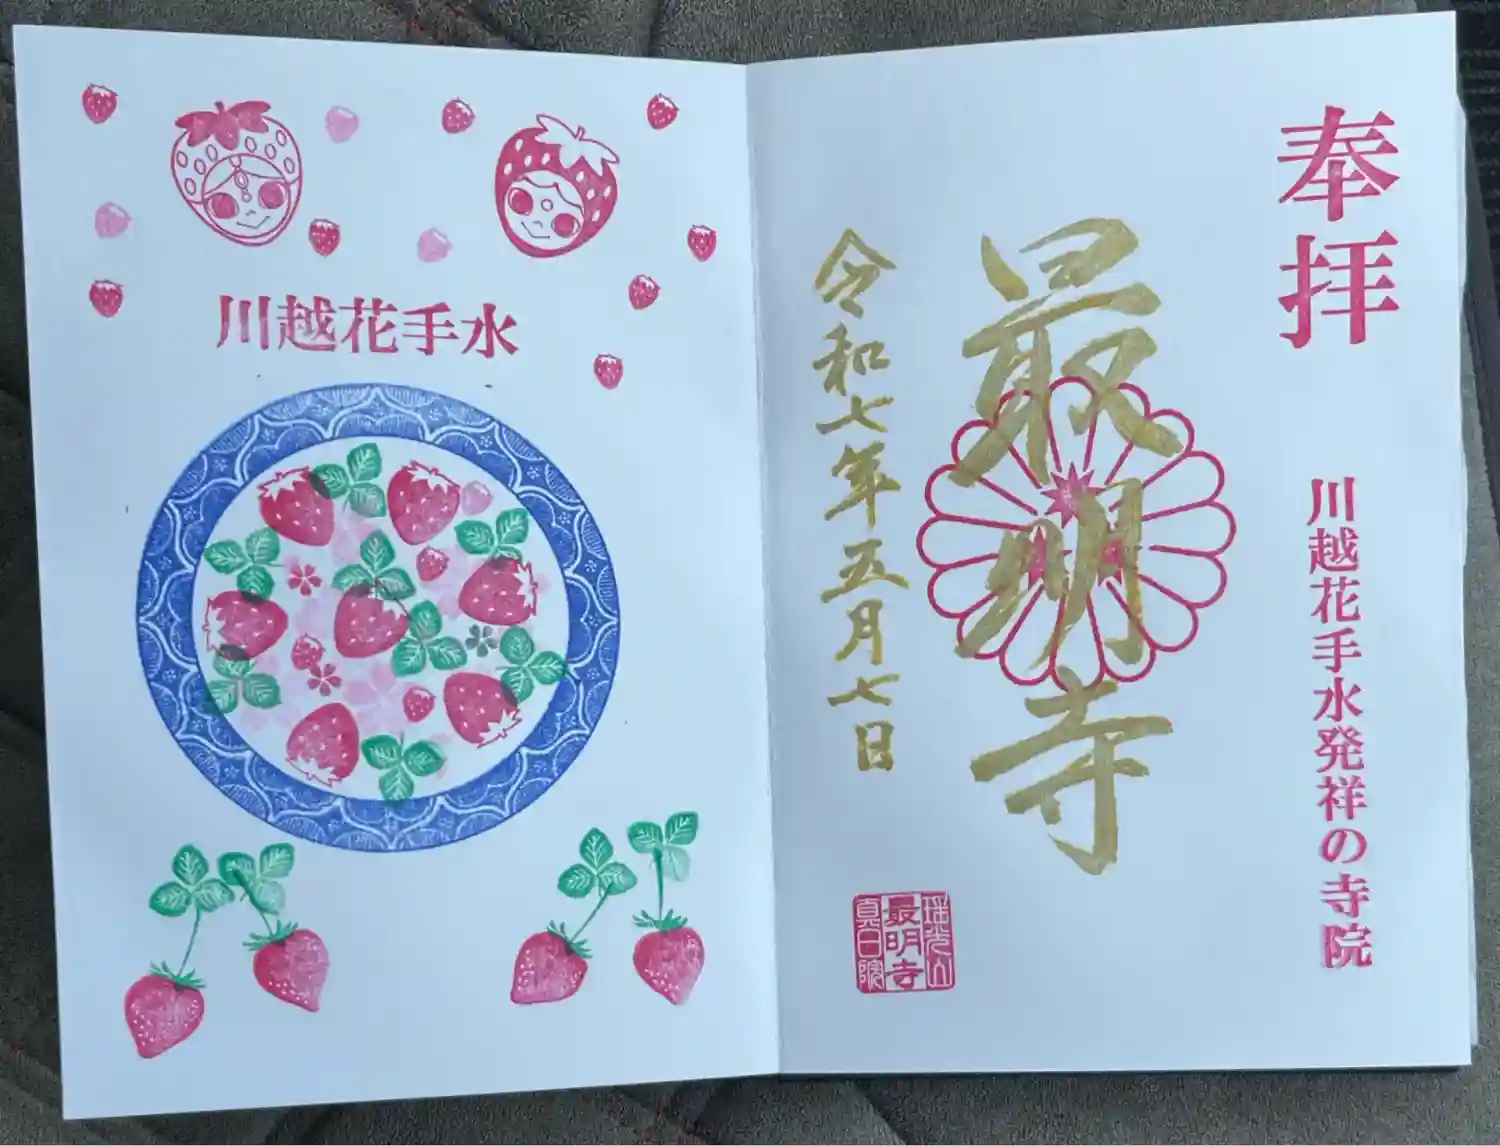 奉拝
川越花手水発祥の寺院
最明寺
令和七年五月七日
瑶光山
最明寺
真日院
川越花手水